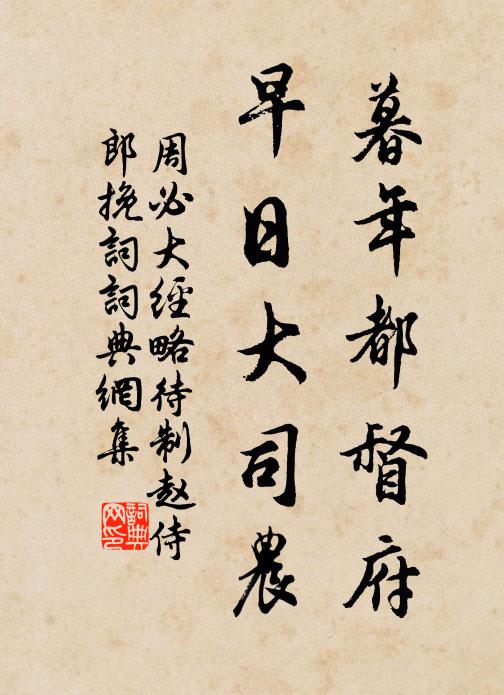 暮年都督府
早日大司農
周必大經略待制赵侍
郎挽詞詞典網集
詞典
网印